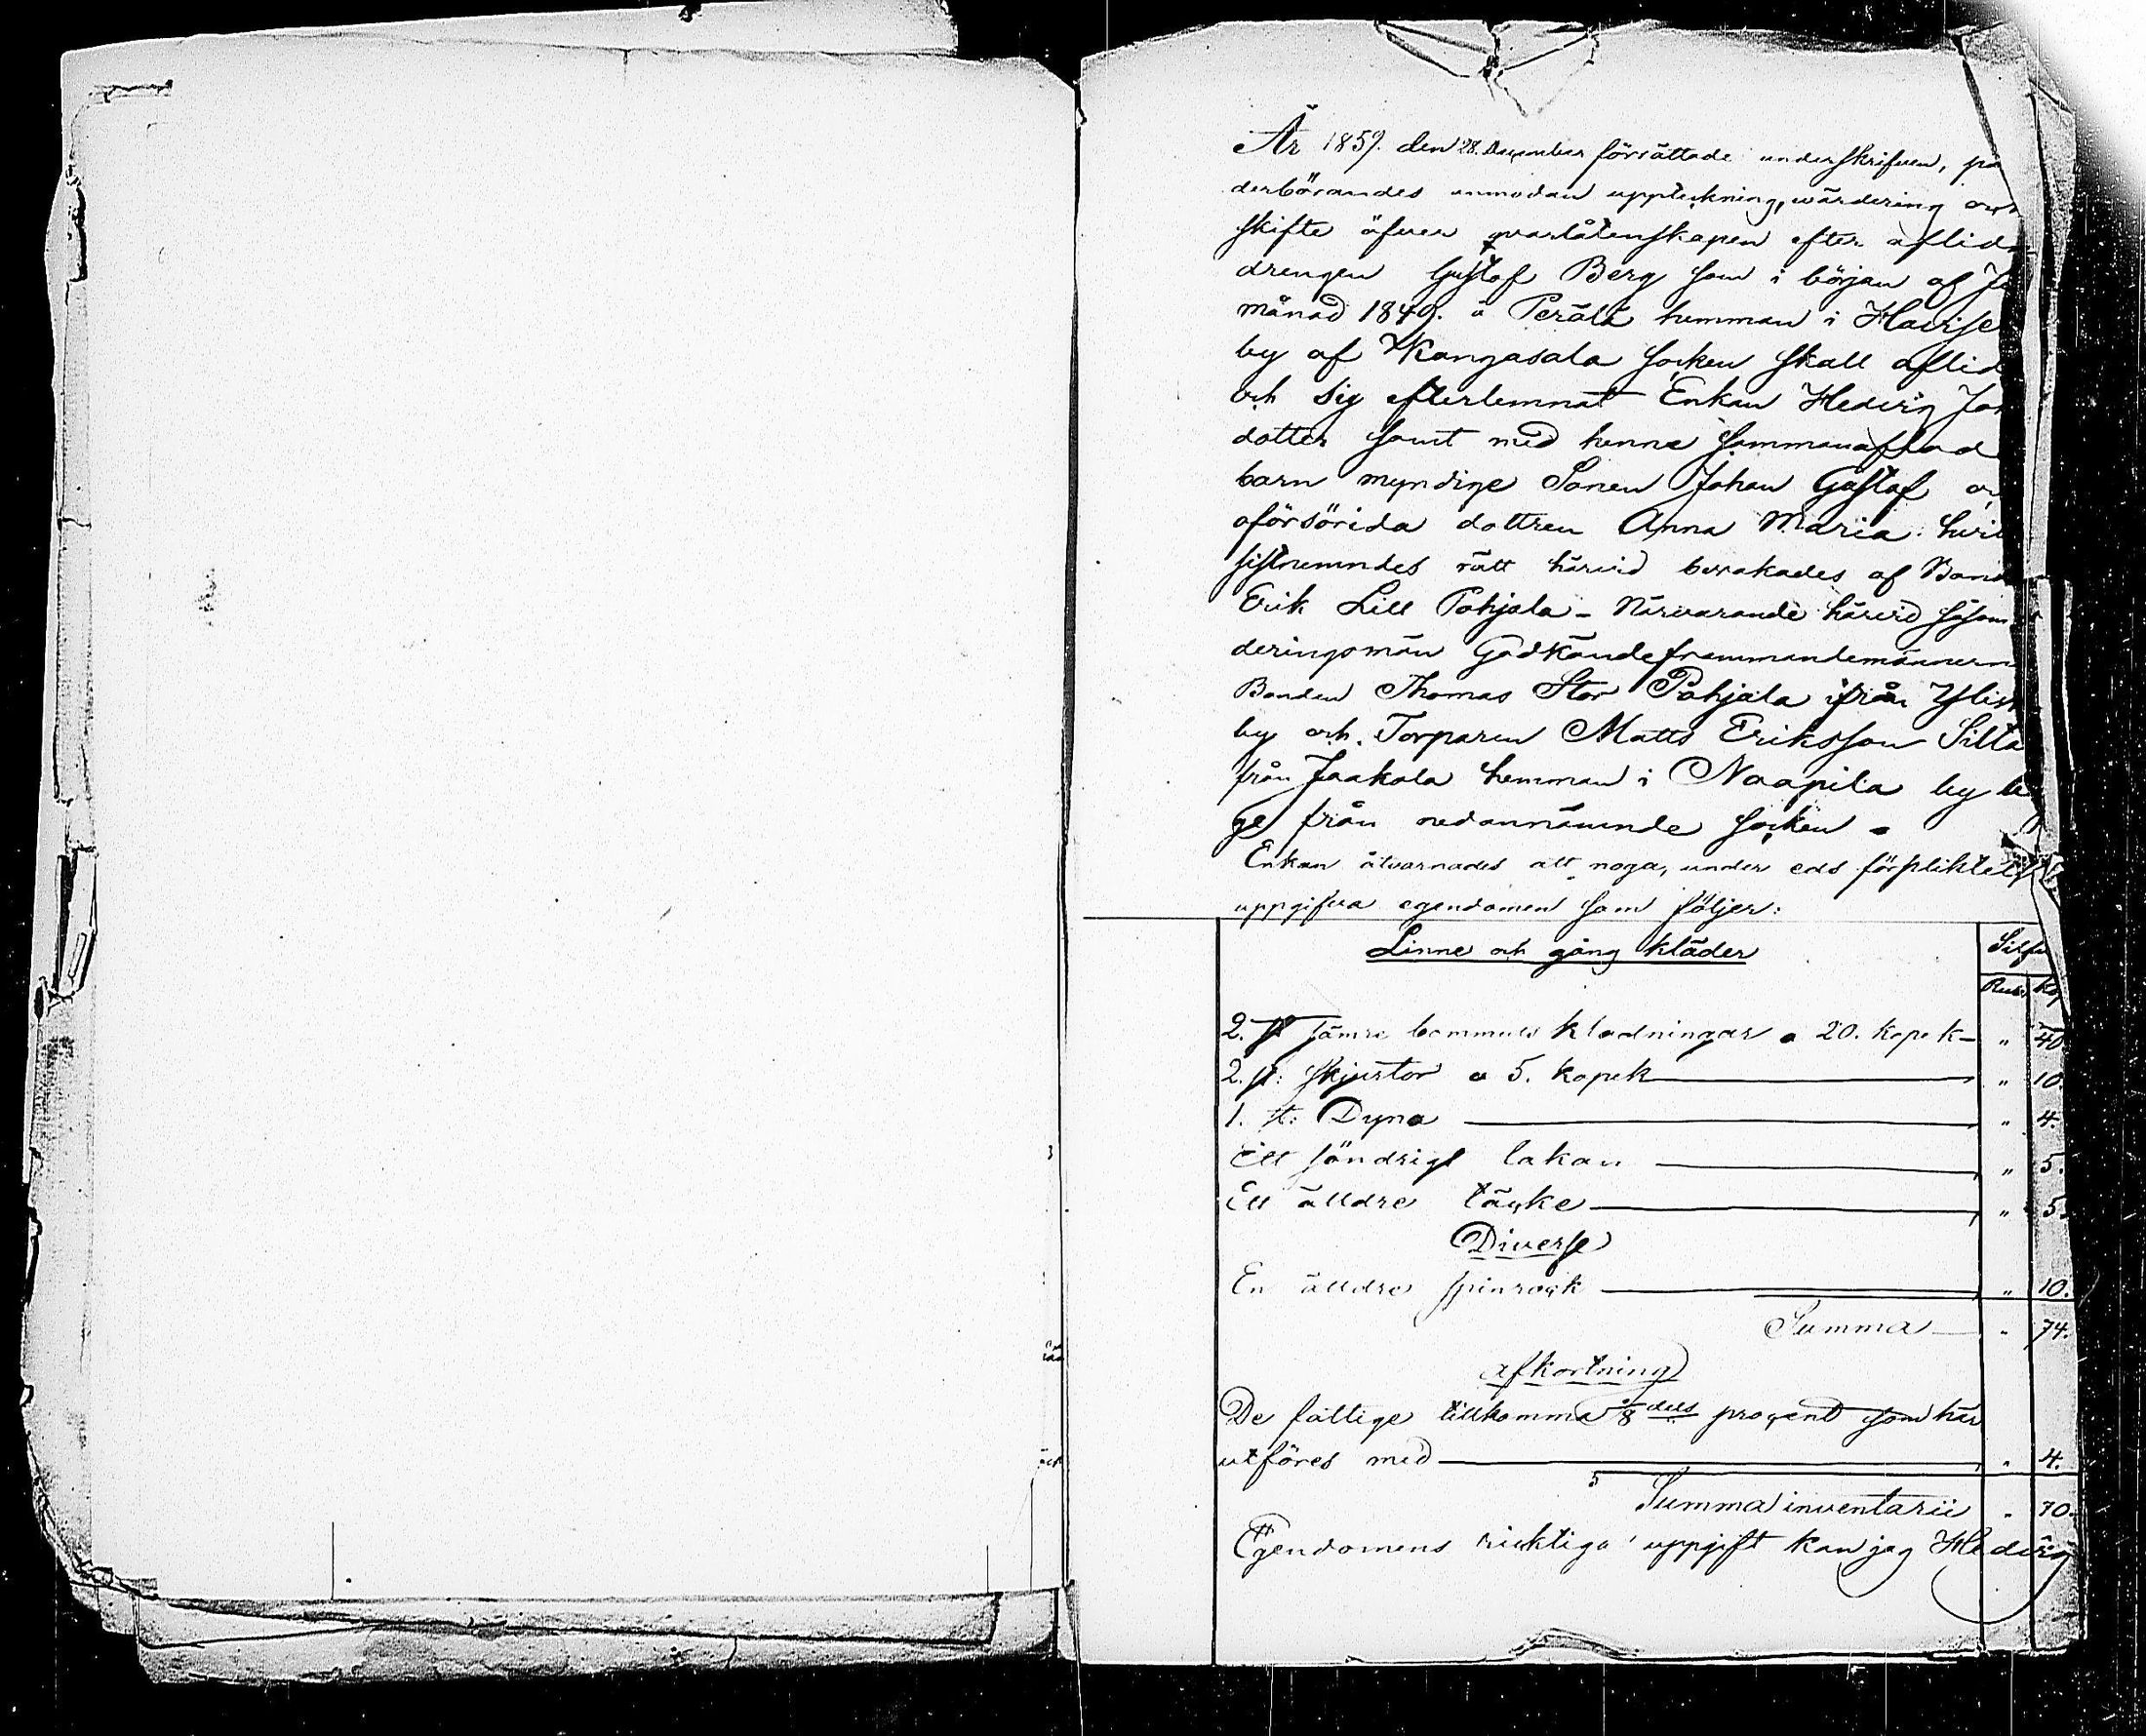 År 1859. den 28. December förrättade underskrifven, på
derbörandes anmodan uppteckning, wärdering och
skifte öfwer qvarlåtenskapen efter aflid
drengen Gustaf Berg som i början af Ju
månad 1849. å Perälä hemman i Hawise
by af Kangasala socken skall aflid
och sig efterlemnat Enkan Hedwig Joh
dotter samt med henne sammanaflad
barn myndige Sonen Johan Gustaf oc
oförsörjda dottren Anna Maria. hwil
sistnemndes rätt härwid bewakades af Bond
Erik Lill Pohjala - Närwarande härwid såsom
deringsmän Godkände frammandemännern
Bonden Thomas Stor Pohjala ifrån Ylis
by och Torparen Matts Eriksson Silta
från Jaakola hemman i Naapila by be
ge från nedannämnde socken -
Enkan åtwarnades att noga, under eds förpliktels
uppgifwa egendomen som följer:
Linne och gång kläder Silfw
Rub. Kop
2. st sämre bommuls kladningar a 20. kopek " 40
2. st: skjortor a 5. kopek " 10.
1. st: Dyna " 4.
Ett söndrigt lakan " 5.
Ett älldre täcke " 5.
Diverse
En älldre spinrock " 10.
Summa " 74.
afkortning
De fattige tillkomma 1/8 dels procent som här
utföres med " 4.
Summa inventarii " 70.
Egendomens ricktiga uppgift kan jag Hedwig